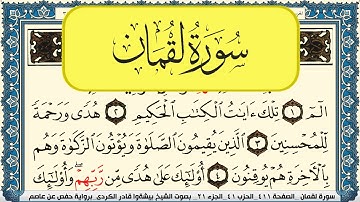 سورة لقمان
الٓمٓ ١ تِلْكَ ءَايَٰتُ ٱلْكِتَٰبِ ٱلْحَكِيمِ ٢ هُدًى وَرَحْمَةً
لِّلْمُحْسِنِينَ ٣ ٱلَّذِينَ يُقِيمُونَ ٱلصَّلَوٰةَ وَيُؤْتُونَ ٱلزَّكَوٰةَ وَهُم
بِٱلْءَاخِرَةِ هُمْ يُوقِنُونَ ٤ أُو۟لَٰٓئِكَ عَلَىٰ هُدًى مِّن رَّبِّهِمْ ۖ وَأُو۟لَٰٓئِكَ
سورة لقمان الصفحة ٤١١ الحزب ٤١ الجزء ٢١ بصوت الشيخ بيشةوا قادر الكردي برواية حفص عن عاصم